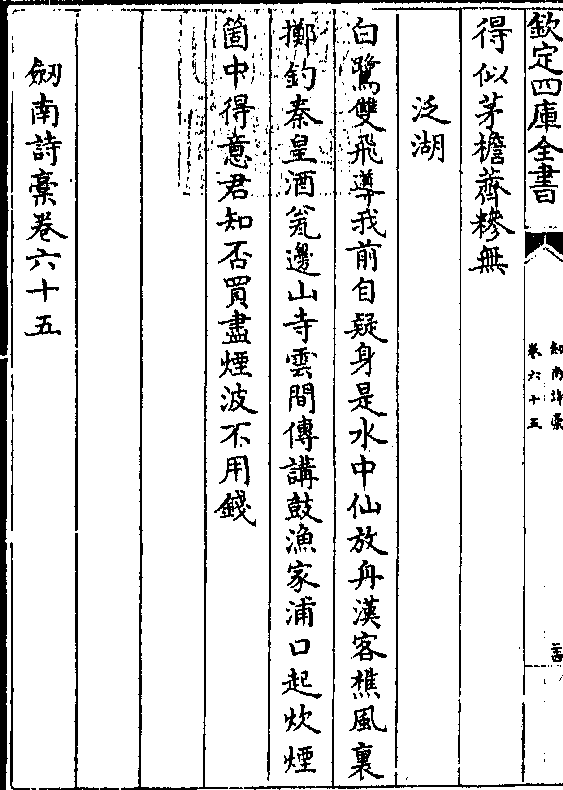 欽定四庫全書
劔南詩稾
卷六十五
得似茅檐薺糝無
泛湖
白鷺雙飛導我前自疑身是水中仙放舟漢客樵風裏
擲釣秦皇酒瓮邊山寺雲間傳講鼓漁家浦口起炊煙
箇中得意君知否買盡煙波不用錢
劔南詩稾卷六十五